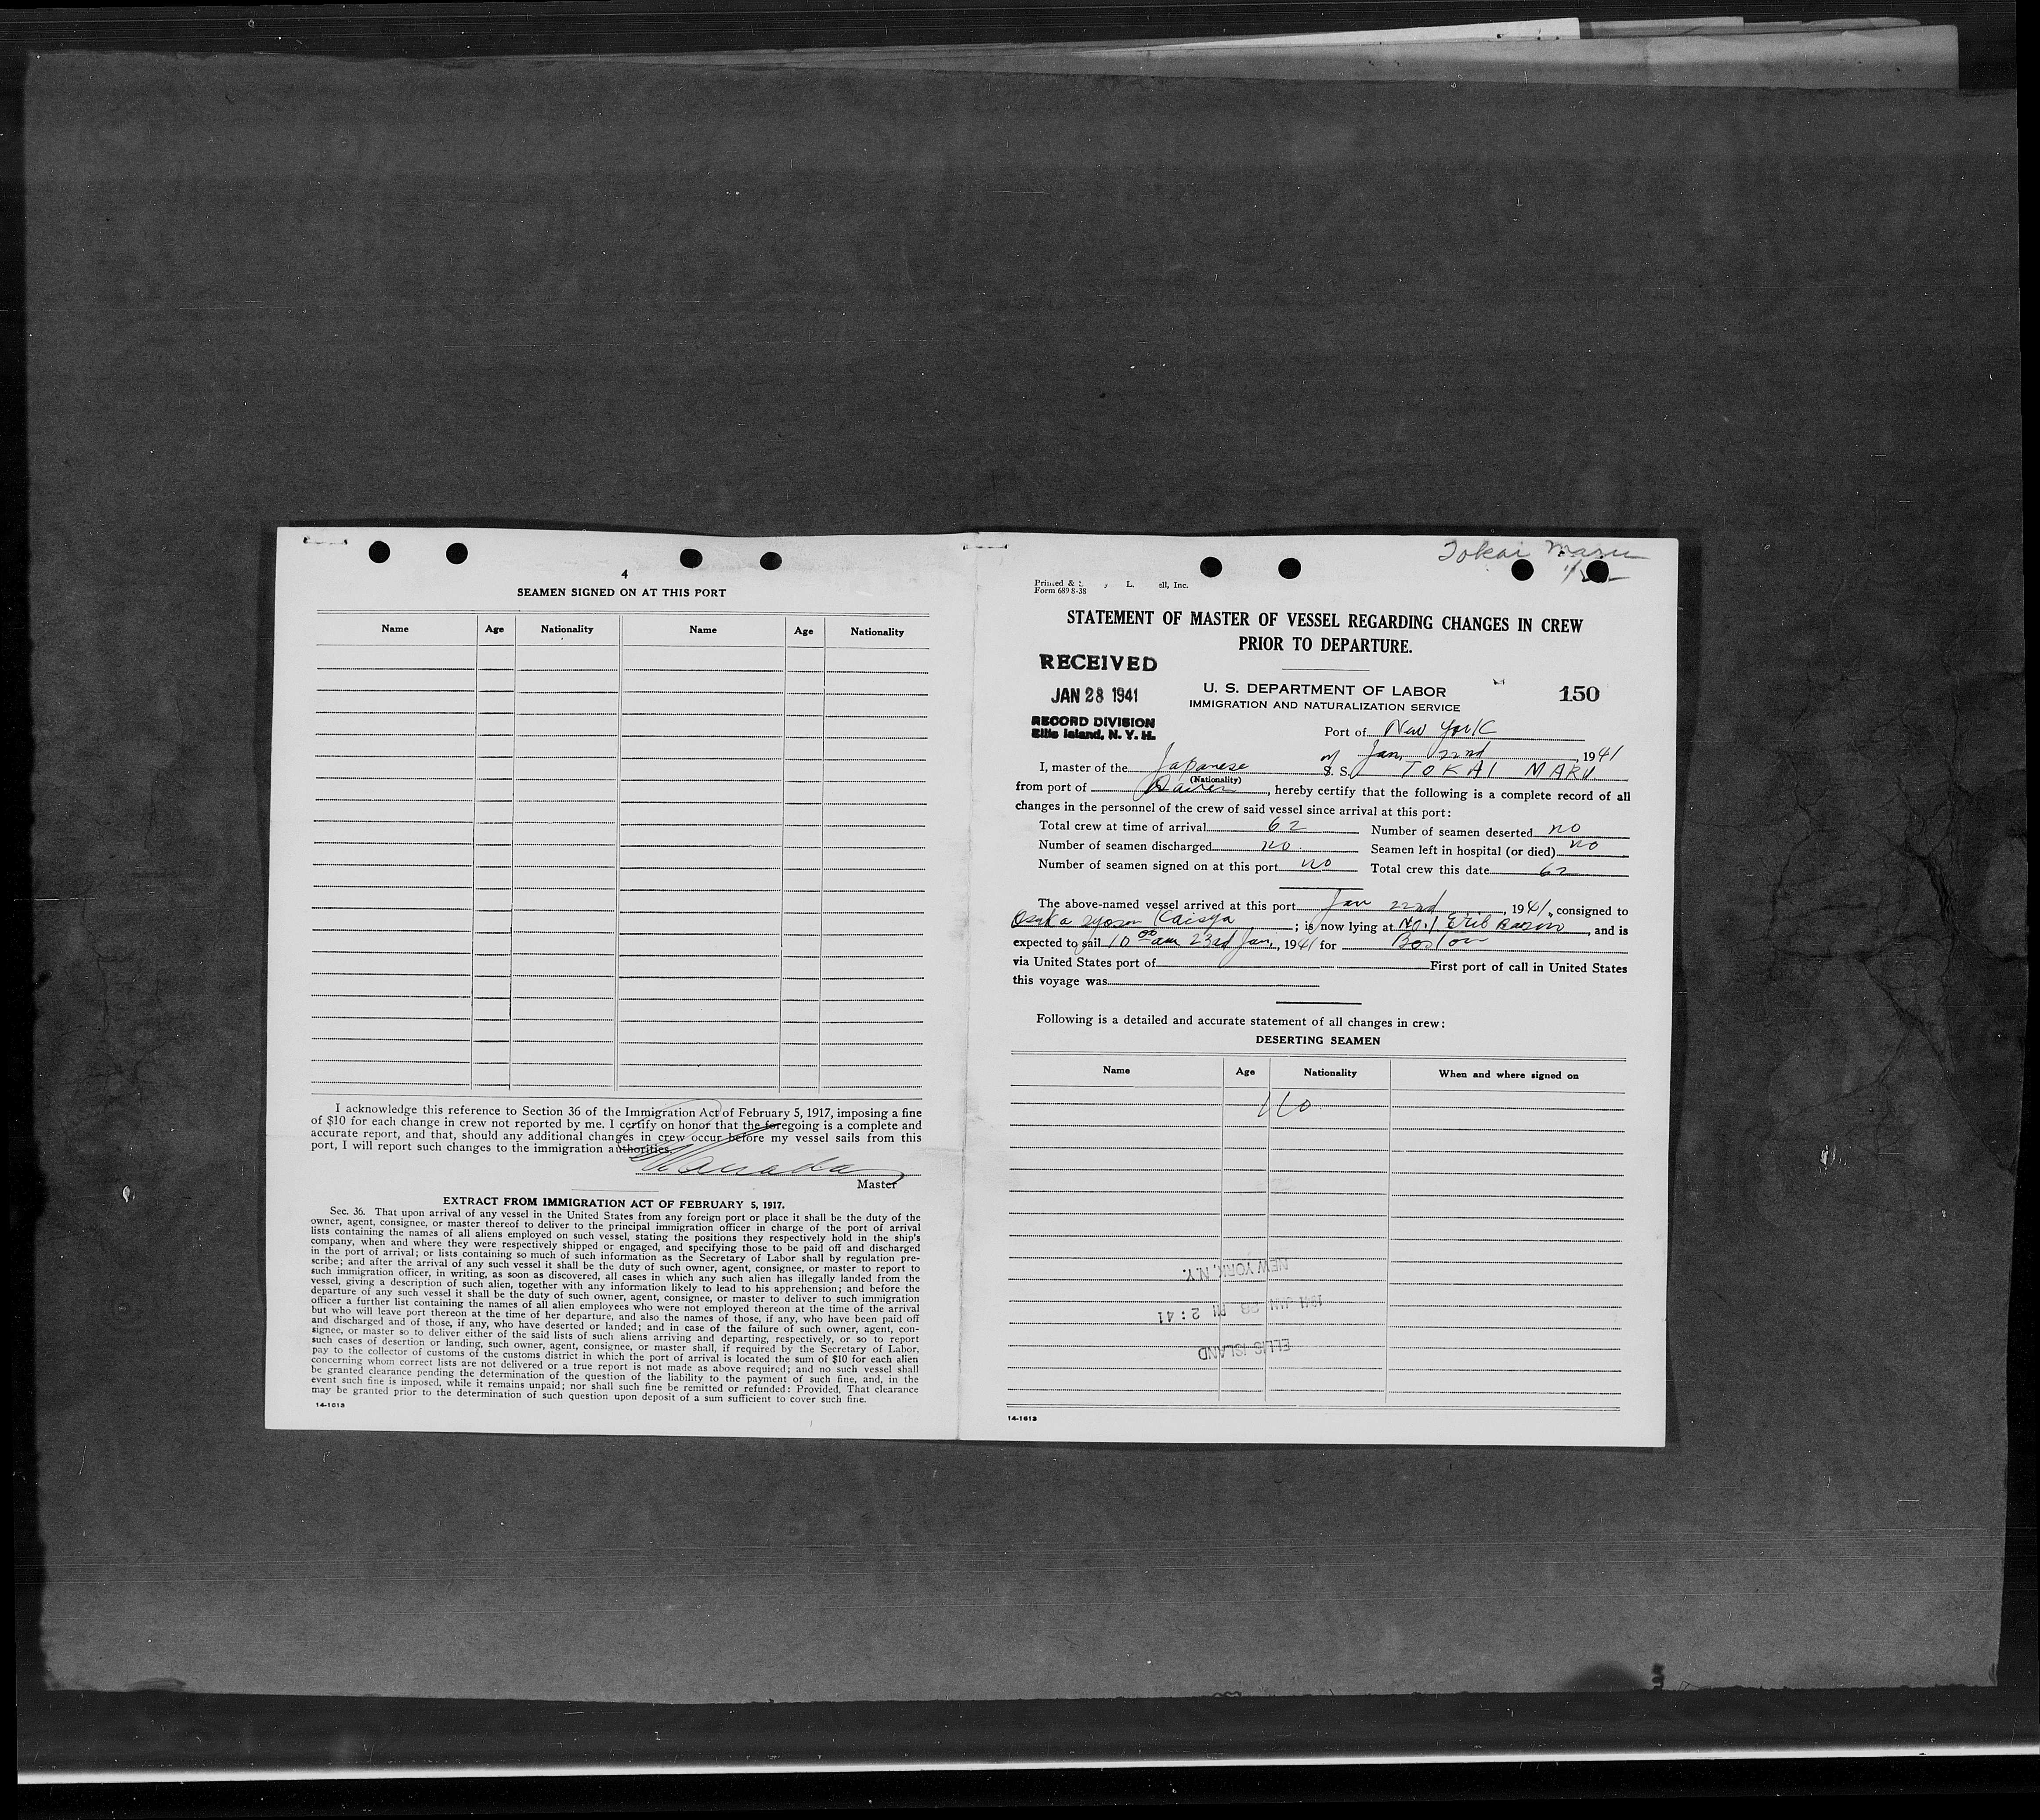 4
SEAMEN SIGNED ON AT THIS PORT
Name Age Nationality Name Age Nationality
I acknowledge this reference to Section 36 of the Immigration Act of February 5, 1917, imposing a fine
of $10 for each change in crew not reported by me. I certify on honor that the foregoing is a complete and
accurate report, and that, should any additional changes in crew occur before my vessel sails from this
port, I will report such changes to the immigration authorities.
Master
EXTRACT FROM IMMIGRATION ACT OF FEBRUARY 5, 1917.
Sec. 36. That upon arrival of any vessel in the United States from any foreign port or place it shall be the duty of the
owner, agent, consignee, or master thereof to deliver to the principal immigration officer in charge of the port of arrival
lists containing the names of all aliens employed on such vessel, stating the positions they respectively hold in the ship's
company, when and where they were respectively shipped or engaged, and specifying those to be paid off and discharged
in the port of arrival; or lists containing so much of such information as the Secretary of Labor shall by regulation pre-
scribe; and after the arrival of any such vessel it shall be the duty of such owner, agent, consignee, or master to report to
such immigration officer, in writing, as soon as discovered, all cases in which any such alien has illegally landed from the
vessel, giving a description of such alien, together with any information likely to lead to his apprehension; and before the
departure of any such vessel it shall be the duty of such owner, agent, consignee, or master to deliver to such immigration
officer a further list containing the names of all alien employees who were not employed thereon at the time of the arrival
but who will leave port thereon at the time of her departure, and also the names of those, if any, who have been paid off
and discharged and of those, if any, who have deserted or landed; and in case of the failure of such owner, agent, con-
signee, or master so to deliver either of the said lists of such aliens arriving and departing, respectively, or so to report
such cases of desertion or landing, such owner, agent, consignee, or master shall, if required by the Secretary of Labor,
pay to the collector of customs of the customs district in which the port of arrival is located the sum of $10 for each alien
concerning whom correct lists are not delivered or a true report is not made as above required; and no such vessel shall
be granted clearance pending the determination of the question of the liability to the payment of such fine, and, in the
event such fine is imposed, while it remains unpaid; nor shall such fine be remitted or refunded: Provided, That clearance
may be granted prior to the determination of such question upon deposit of a sum sufficient to cover such fine.
14-1613
Tokai Maru
Printed & L. ell, Inc.
Form 689 8-38
STATEMENT OF MASTER OF VESSEL REGARDING CHANGES IN CREW
PRIOR TO DEPARTURE.
RECEIVED
JAN 28 1941
RECORD DIVISION
Ellis Island, N. Y. H.
U. S. DEPARTMENT OF LABOR
IMMIGRATION AND NATURALIZATION SERVICE
150
Port of New York
Jan 22nd, 1941
I, master of the Japanese S. S. TOKAI MARU
(Nationality)
from port of Dairen, hereby certify that the following is a complete record of all
changes in the personnel of the crew of said vessel since arrival at this port:
Total crew at time of arrival 62 Number of seamen deserted no
Number of seamen discharged no Seamen left in hospital (or died) no
Number of seamen signed on at this port no Total crew this date 62
The above-named vessel arrived at this port Jan 22nd, 1941, consigned to
Osaka Syosen Kaisya; is now lying at No. 1 Erie Basin, and is
expected to sail 10 00 am 23rd Jan, 1941 for Boston
via United States port of First port of call in United States
this voyage was
Following is a detailed and accurate statement of all changes in crew:
DESERTING SEAMEN
Name Age Nationality When and where signed on
No
NEW YORK, N.Y.
1941 JAN 28 PM 2:41
ELLIS ISLAND
14-1613